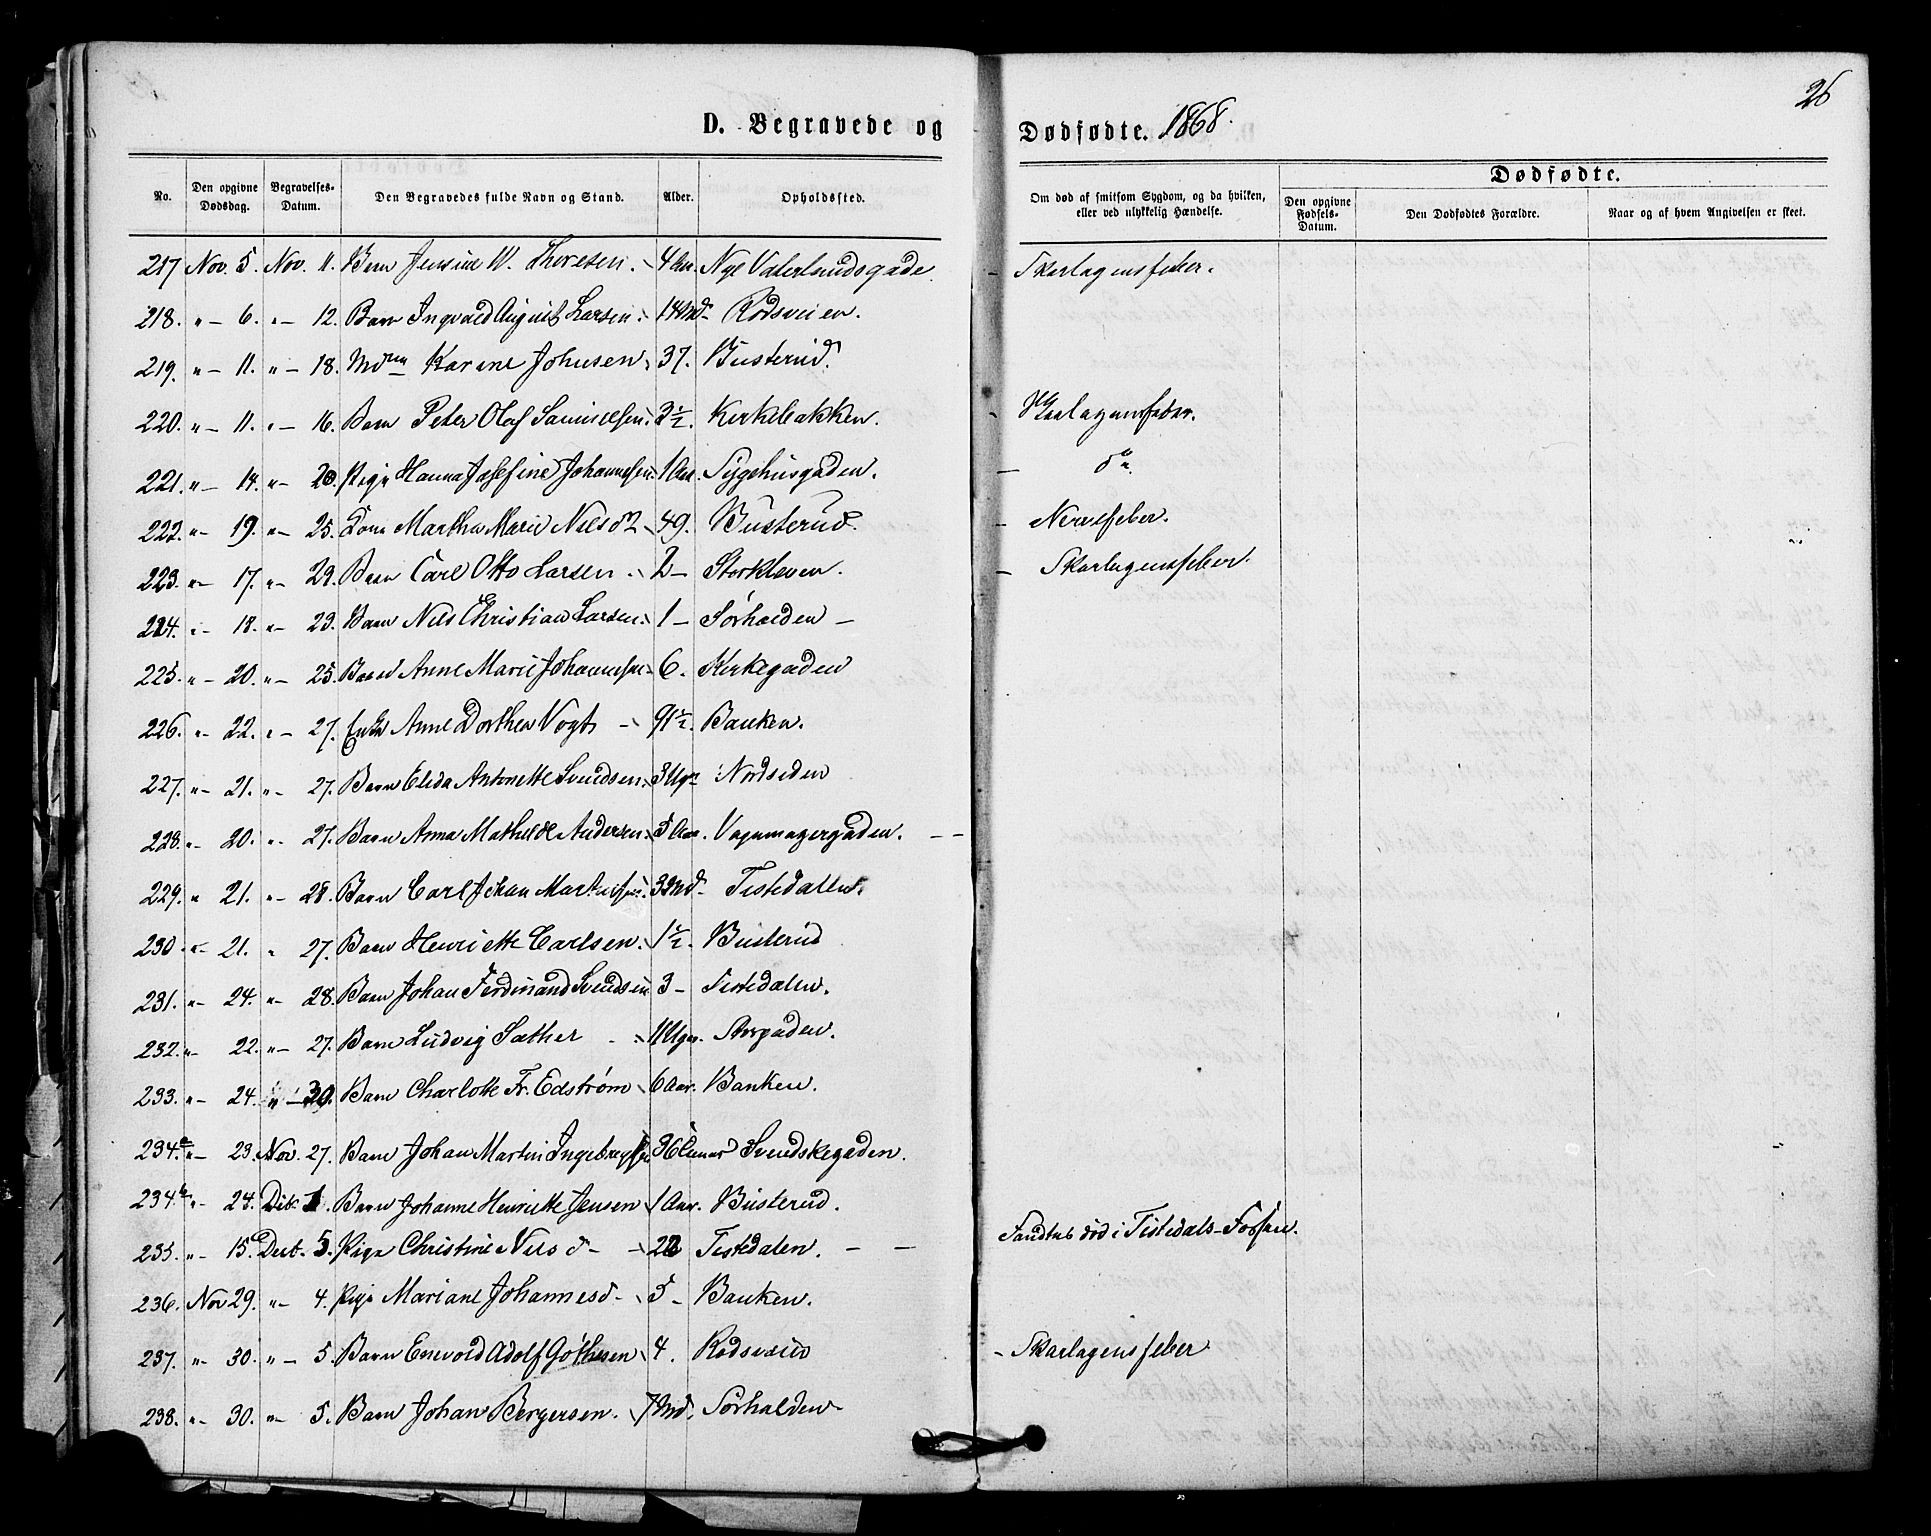 26
D. Begravede og Dødfødte. 1868.
No. Den opgivne Dødsdag. Begravelses-Datum. Den Begravedes fulde Navn og Stand. Alder. Opholdssted. Om død af smitsom Sygdom, og da hvilken, eller ved ulykkelig Hændelse. Dødfødte. Den opgivne Fødsels-Datum. Den Dødfødtes Forældre. Naar og af hvem Angivelsen er skeet.
217 Nov. 5. Nov. 11. Barn Jensine W. Thoresen. 4 Aar. Nye Vaterlandsgade. - Skarlagensfeber.
218. " - 6. " - 12. Barn Ingvald August Larsen. 14 Md. Rødsveien.
219. " - 11. " - 18. Mdm Karine Johnsen 37. Busterud.
220. " - 11. " - 16. Barn Peter Olaf Samuelsen. 3½. Kirkebakken. - Skarlagensfeber.
221. " - 14. " - 20. Pige Hanna Josefine Johannesen. 1 Aar. Sygehusgaden. - do.
222. " - 19. " - 25. Kone Martha Marie Nilsd. 49. Busterud. - Nervefeber.
223. " - 17. " - 29. Barn Carl Otto Larsen. 2 - Storkleven. - Skarlagensfeber.
224. " - 18. " - 23. Barn Nils Christian Larsen. 1 - Sørhalden -
225. " - 20. " - 25. Barn Anne Marie Johannesen - 6. Kirkegaden
226. " - 22. " - 27. Enke Anne Dorthea Vogt - 91½. Banken.
227. " - 21. " - 27. Barn Elida Antonette Svendsen. 3 Ugr. Nordsiden
228. " - 20. " - 27. Barn Anna Mathilde Andersen. 5 Aar. Vognmagergaden. - -
229. " 21. " - 28. Barn Carl Johan Martinsen. 3 Md. Tistedalen.
230 " - 21. " 27. Barn Henriette Carlsen. 1½. Busterud
231. " - 24. " - 28. Barn Johan Ferdinand Svendsen 3 - Tistedalen.
232. " - 22. " - 27. Barn Ludvig Sæther - 11 Ugr. Storgaden.
233. " - 24. " - 30. Barn Charlotte Fr. Edstrøm 6 Aar. Banken.
234.a " - 23. Nov. 27. Barn Johan Martin Ingebregtsen Svendskegaden.
234.b " - 24. Deb. 1. Barn Johanne Henriette Jensen 1 Aar. Busterud.
235. " - 15. Debr. 5. Pige Christine Nilsd - - 22 Tistedalen. - - Fandtes død i Tistedals-Fossen.
236. Nov 29. " - 4. Pige Mariane Johannesd - 5 - Banken.
237. " - 30. " - 5. Barn Enevold Adolf Gøthesen 4. Rødsveien - Skarlagensfeber
238. " - 30. " - 5. Barn Johan Bergersen. 7 Md. Sørhalden -